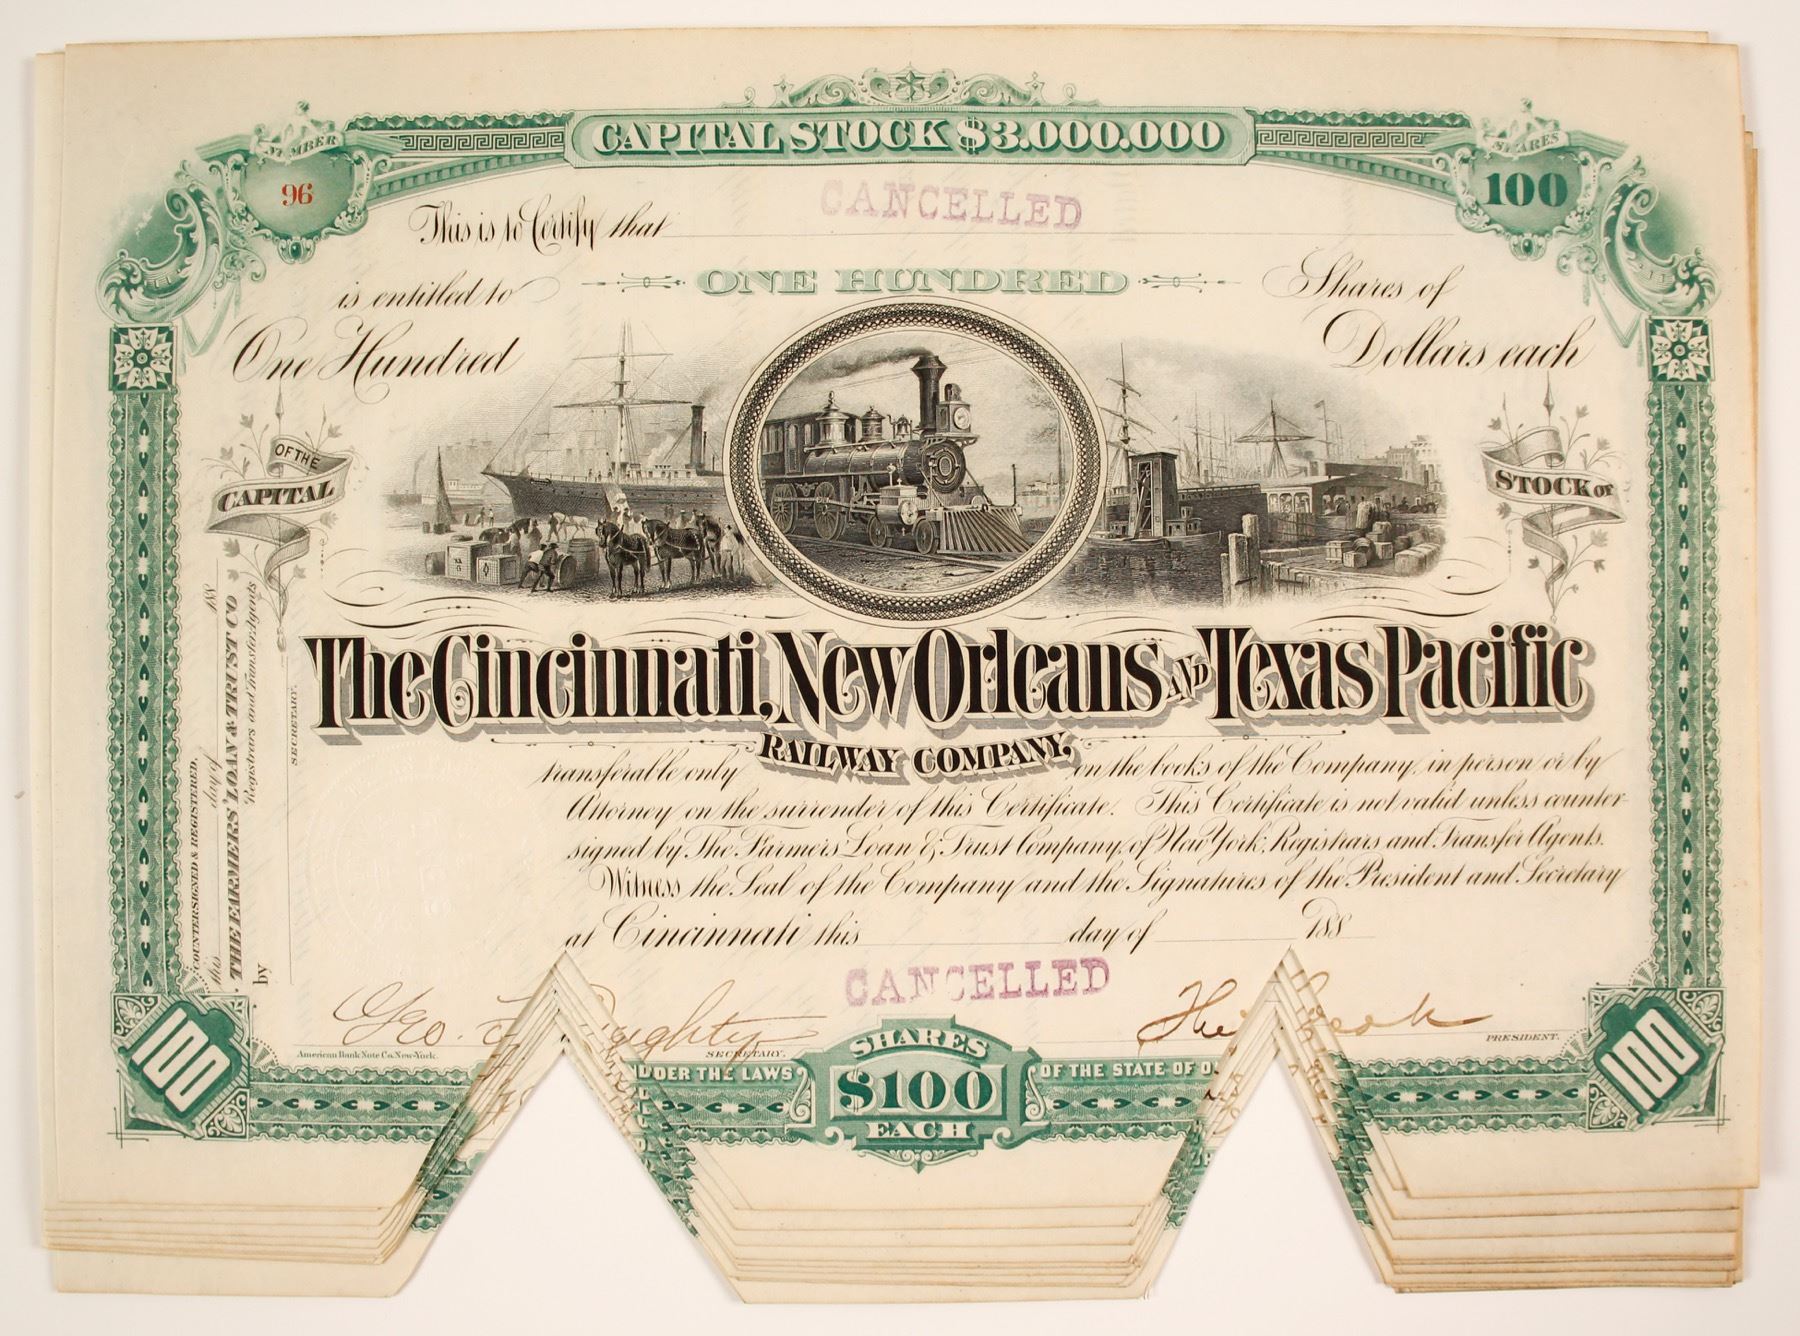 CAPITAL STOCK $3.000.000
NUMBER
96
SHARES
100
CANCELLED
This is to Certify that
is entitled to ONE HUNDRED Shares of
One Hundred Dollars each
OF THE
CAPITAL
STOCK OF
The Cincinnati, New Orleans AND Texas Pacific
RAILWAY COMPANY,
transferable only on the books of the Company, in person or by
Attorney on the surrender of this Certificate. This Certificate is not valid unless counter-
signed by The Farmers' Loan & Trust Company, of New York, Registrars and Transfer Agents.
Witness the Seal of the Company and the Signatures of the President and Secretary
at Cincinnati this day of 188
CANCELLED
COUNTERSIGNED & REGISTERED,
this day of 188
THE FARMERS' LOAN & TRUST CO
Registrars and Transfer Agents
by SECRETARY.
Geo.
SECRETARY.
PRESIDENT.
American Bank Note Co. New-York.
100
UNDER THE LAWS
SHARES
$100
EACH
OF THE STATE OF
100